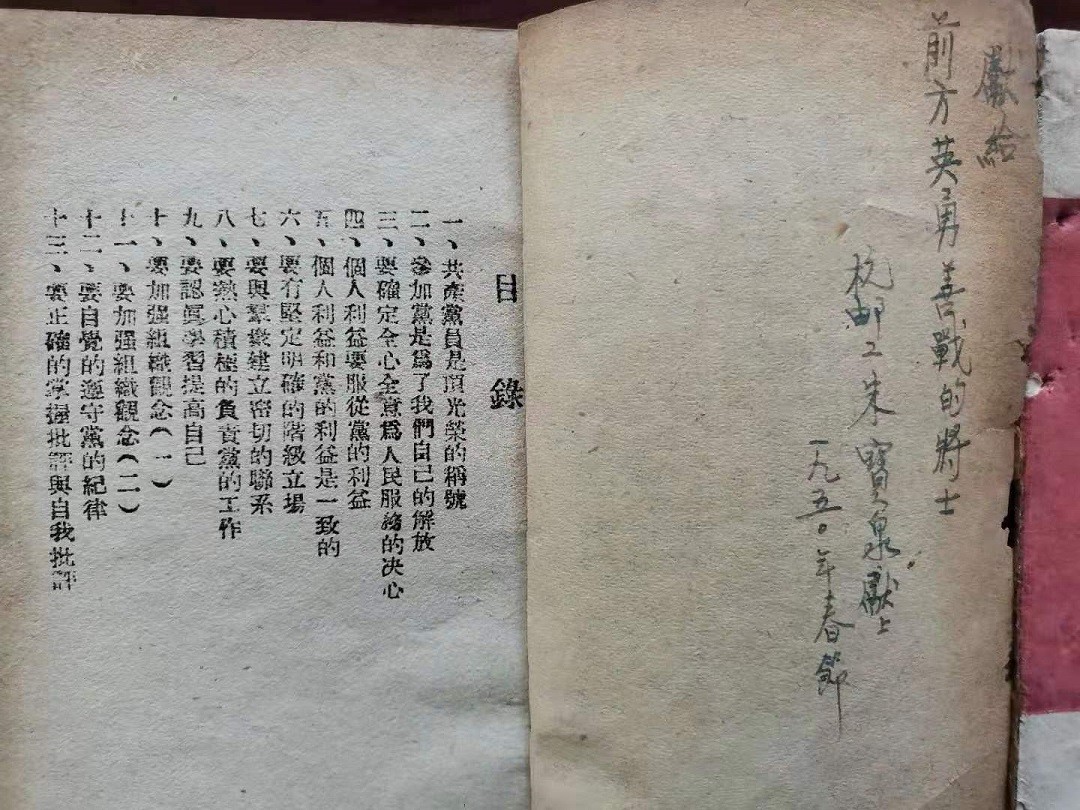 獻給
前方英勇善戰的將士
杭郵工朱寶泉獻上
一九五〇年春節
目錄
一、共產黨員是頂光榮的稱號
二、參加黨是爲了我們自己的解放
三、要確定全心全意爲人民服務的决心
四、個人利益要服從黨的利益
五、個人利益和黨的利益是一致的
六、要有堅定明確的階級立場
七、要與羣衆建立密切的聯系
八、要熱心積極的負責黨的工作
九、要認眞學習提高自己
十、要加强組織觀念(一)
十一、要加强組織觀念(二)
十二、要自覺的遵守黨的紀律
十三、要正確的掌握批評與自我批評